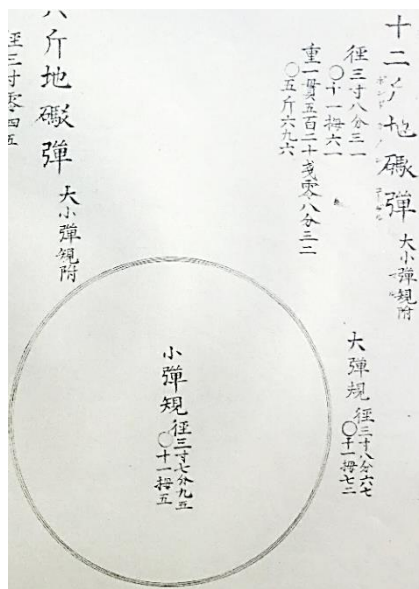 十二斤地礮弾 大小弾規附
徑三寸八分三一
〇十一拇六一
重一貫五百二十戔零八分三二
〇五斤六九六
大弾規 徑三寸八分六七
〇十一拇七二
小弾規 徑三寸七分九五
〇十一拇五
八斤地礮弾 大小弾規附
徑三寸零四五